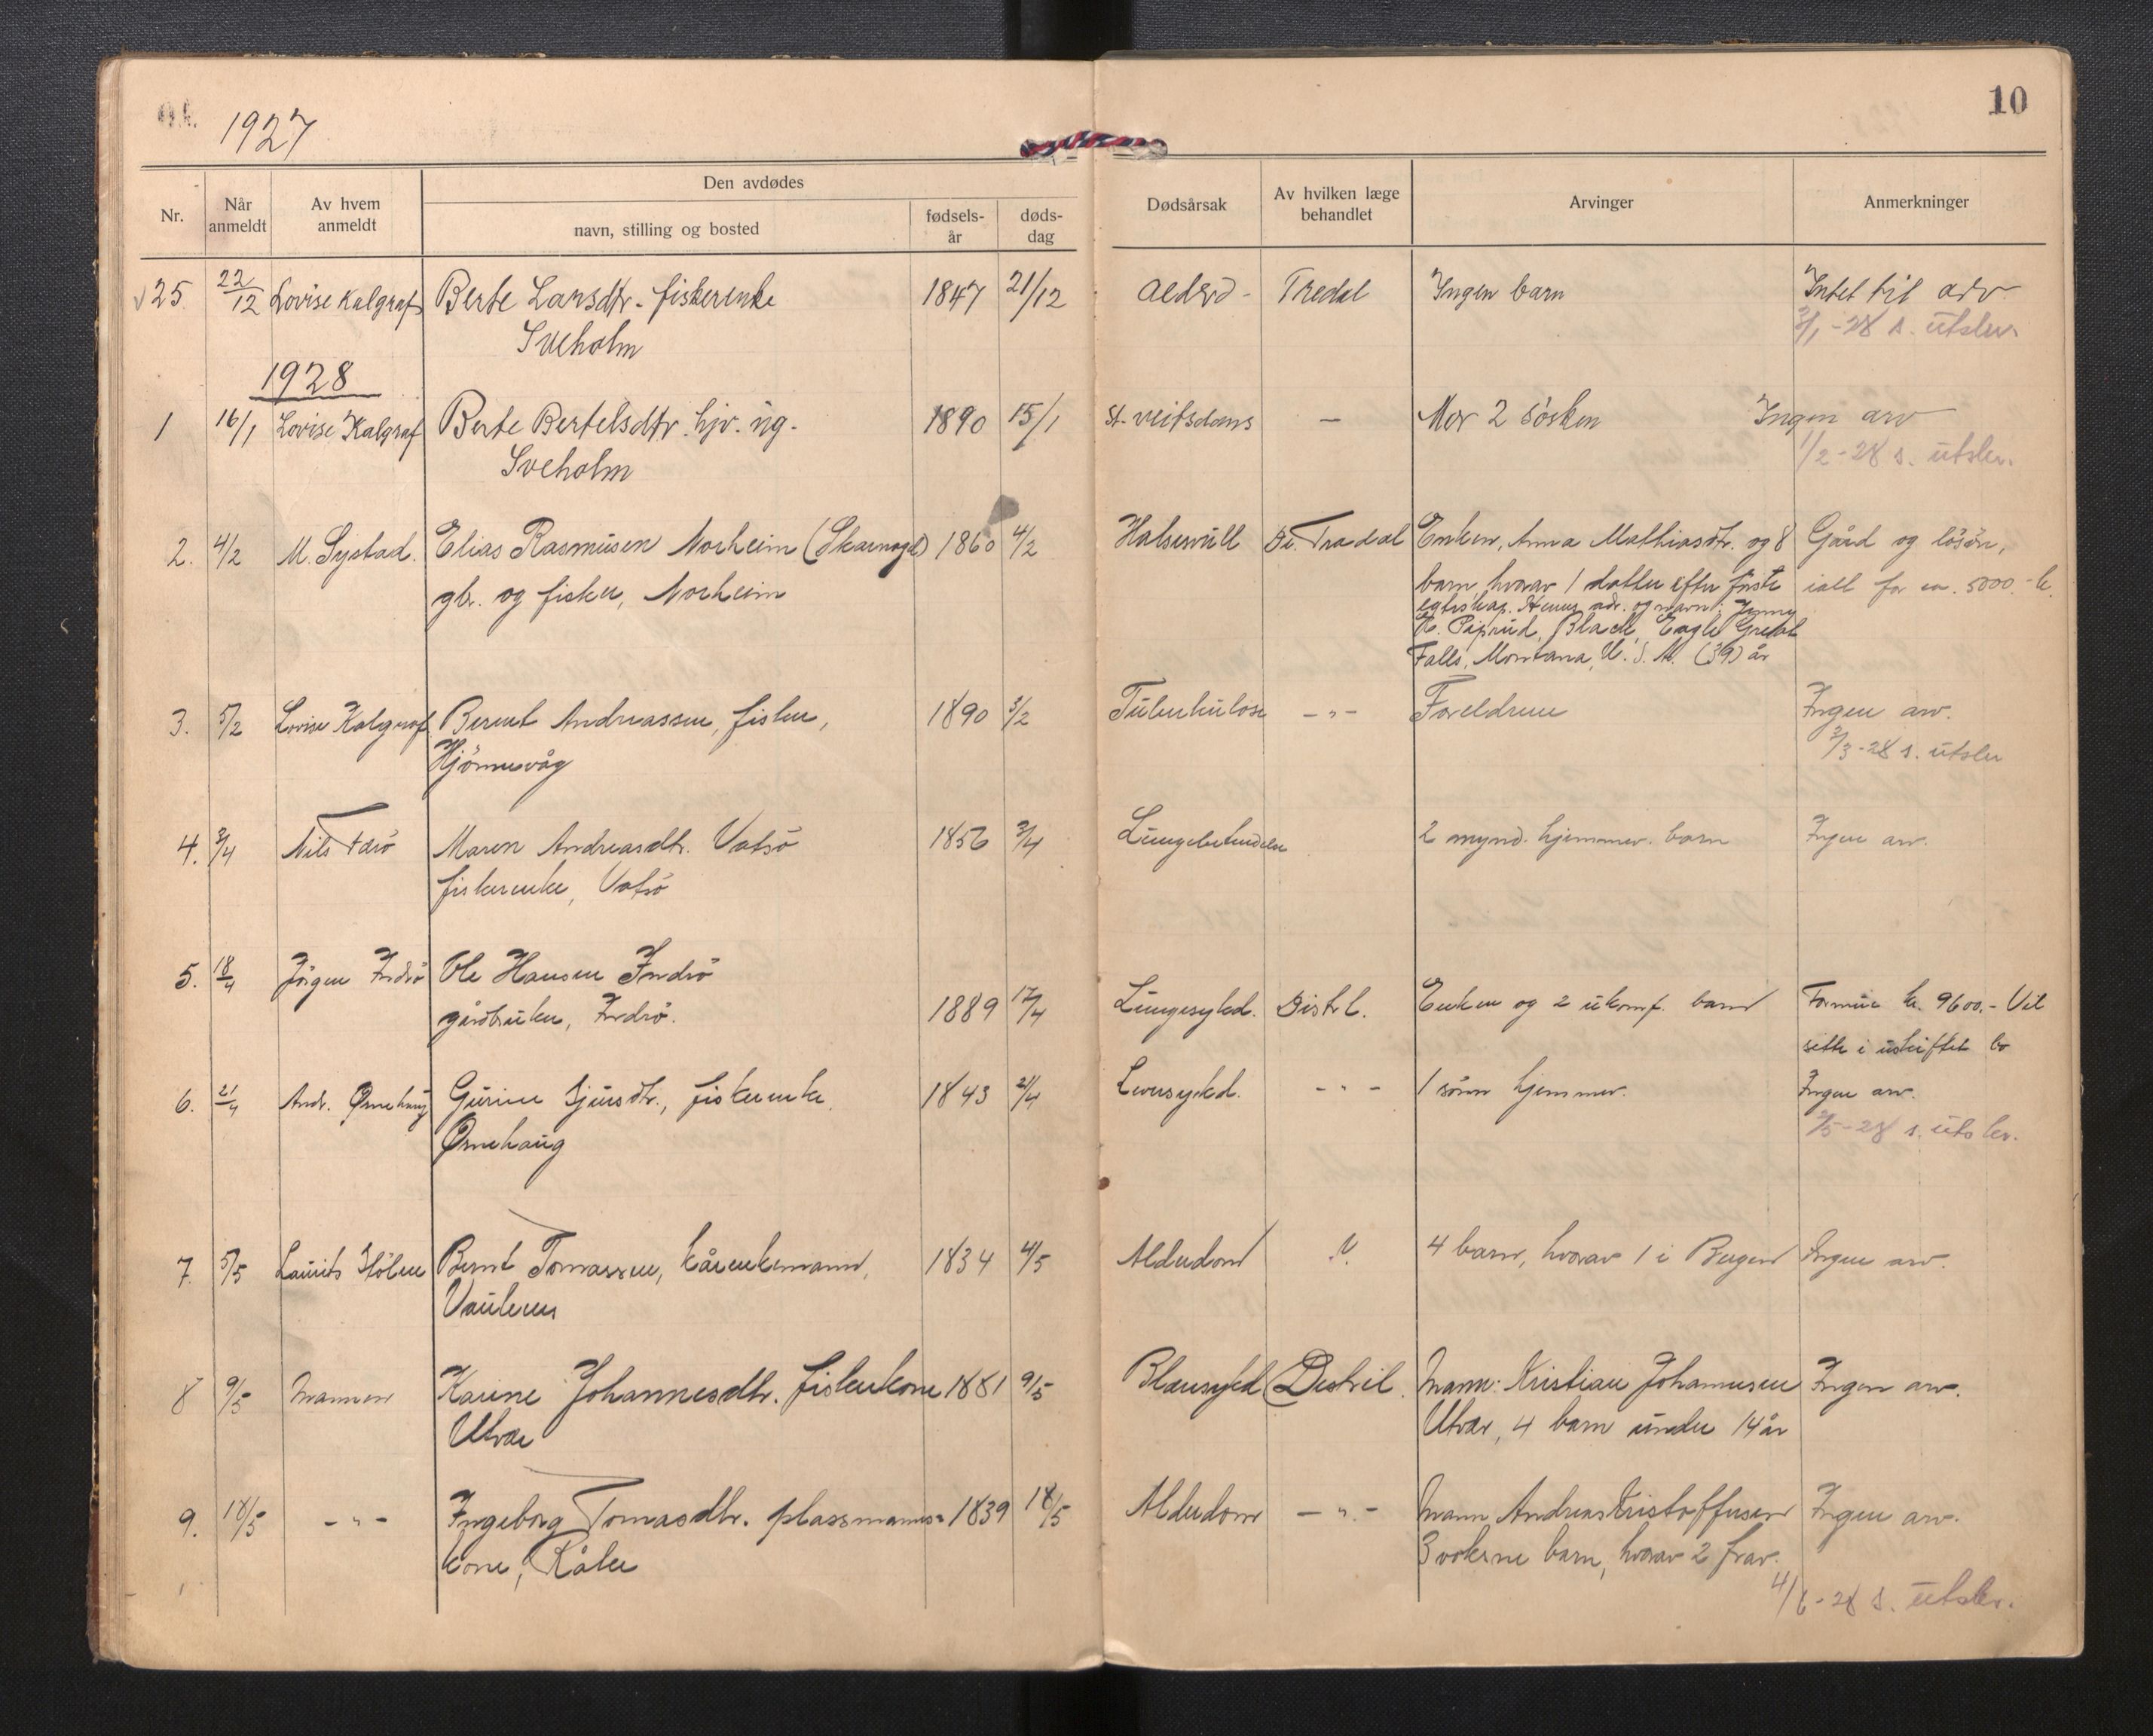 1927
10
Nr.
Når anmeldt
Av hvem anmeldt
Den avdødes
navn, stilling og bosted
fødsels-år
døds-dag
Dødsårsak
Av hvilken læge behandlet
Arvinger
Anmerkninger
25 22/12 Lovise Kalgraf Berte Larsdtr. fiskerenke 1847 21/12 Aelerd- Tredal Ingen barn Intet til arv
Sveholm 3/1-28 s. utskr.
1928
1 16/1 Lovise Kalgraf Berte Bertelsdtr. hjv. ug. 1890 15/1 St. veitsdans — Mor 2 søsken Ingen arv
Sveholm 1/2-28 s. utskr.
2. 4/2 M. Systad. Elias Rasmusen Norheim (Skarnagel) 1860 4/2 Halsesvull Di. Tradal Enken, Anna Mathiasdtr. og 8 Gård og lösöre,
gbr. og fisker, Norheim barn, hvorav 1 datter efter første ialt for ca. 5000.- k.
egteskap. Hennes adr. og navn: Jenny
K. Piprud, Black Eagle Great
Falls, Montana, U.S.A. (39) år
3. 5/2 Lovise Kalgraf Berent Andreassen, fisker, 1890 3/2 Tuberkulose -"- Foreldrene Ingen arv.
Hjönnevåg 2/3-28 s. utskr
4. 3/4 Nils Maren Andreasdtr. Vatsö 1856 3/4 Lungebetendelse 2 mynd. hjemmev. barn Ingen arv.
fiskerenke, Vatsö
5. 18/4 Jörgen Indrö Ole Hansen Indrö
gårdbruker, Indrö. 1889 17/4 Lungesykd. Distrl. Enken og 2 ukonf. barn Formue kr. 9600.- Vil
sitte i uskiftet bo
6. 21/4 Andr. Ørnehaug Gurine Sjursdtr., fiskerenke 1843 21/4 Leversykd. -"- 1 sönn hjemmev. Ingen arv.
Ørnehaug 2/5-28 s. utskr.
7. 5/5 Laurits Stölen Bernt Tomassen, kårenkemann, 1834 4/5 Alderdom 4 barn, hvorav 1 i Bergen Ingen arv.
8 9/5 Mannen Karine Johannesdtr. fiskerkone 1881 9/5 Distril. Mann: Kristian Johannesen Ingen arv.
Utvær Utvær, 4 barn under 14 år
9. 18/5 -"- Ingeborg Tomasdtr. plassmanns- 1839 18/5 Alderdom -"- Mann Andreas Kristoffersen Ingen arv.
kone, Kåler 3 voksne barn, hvorav 2 frav.
4/6-28 s. utskr.